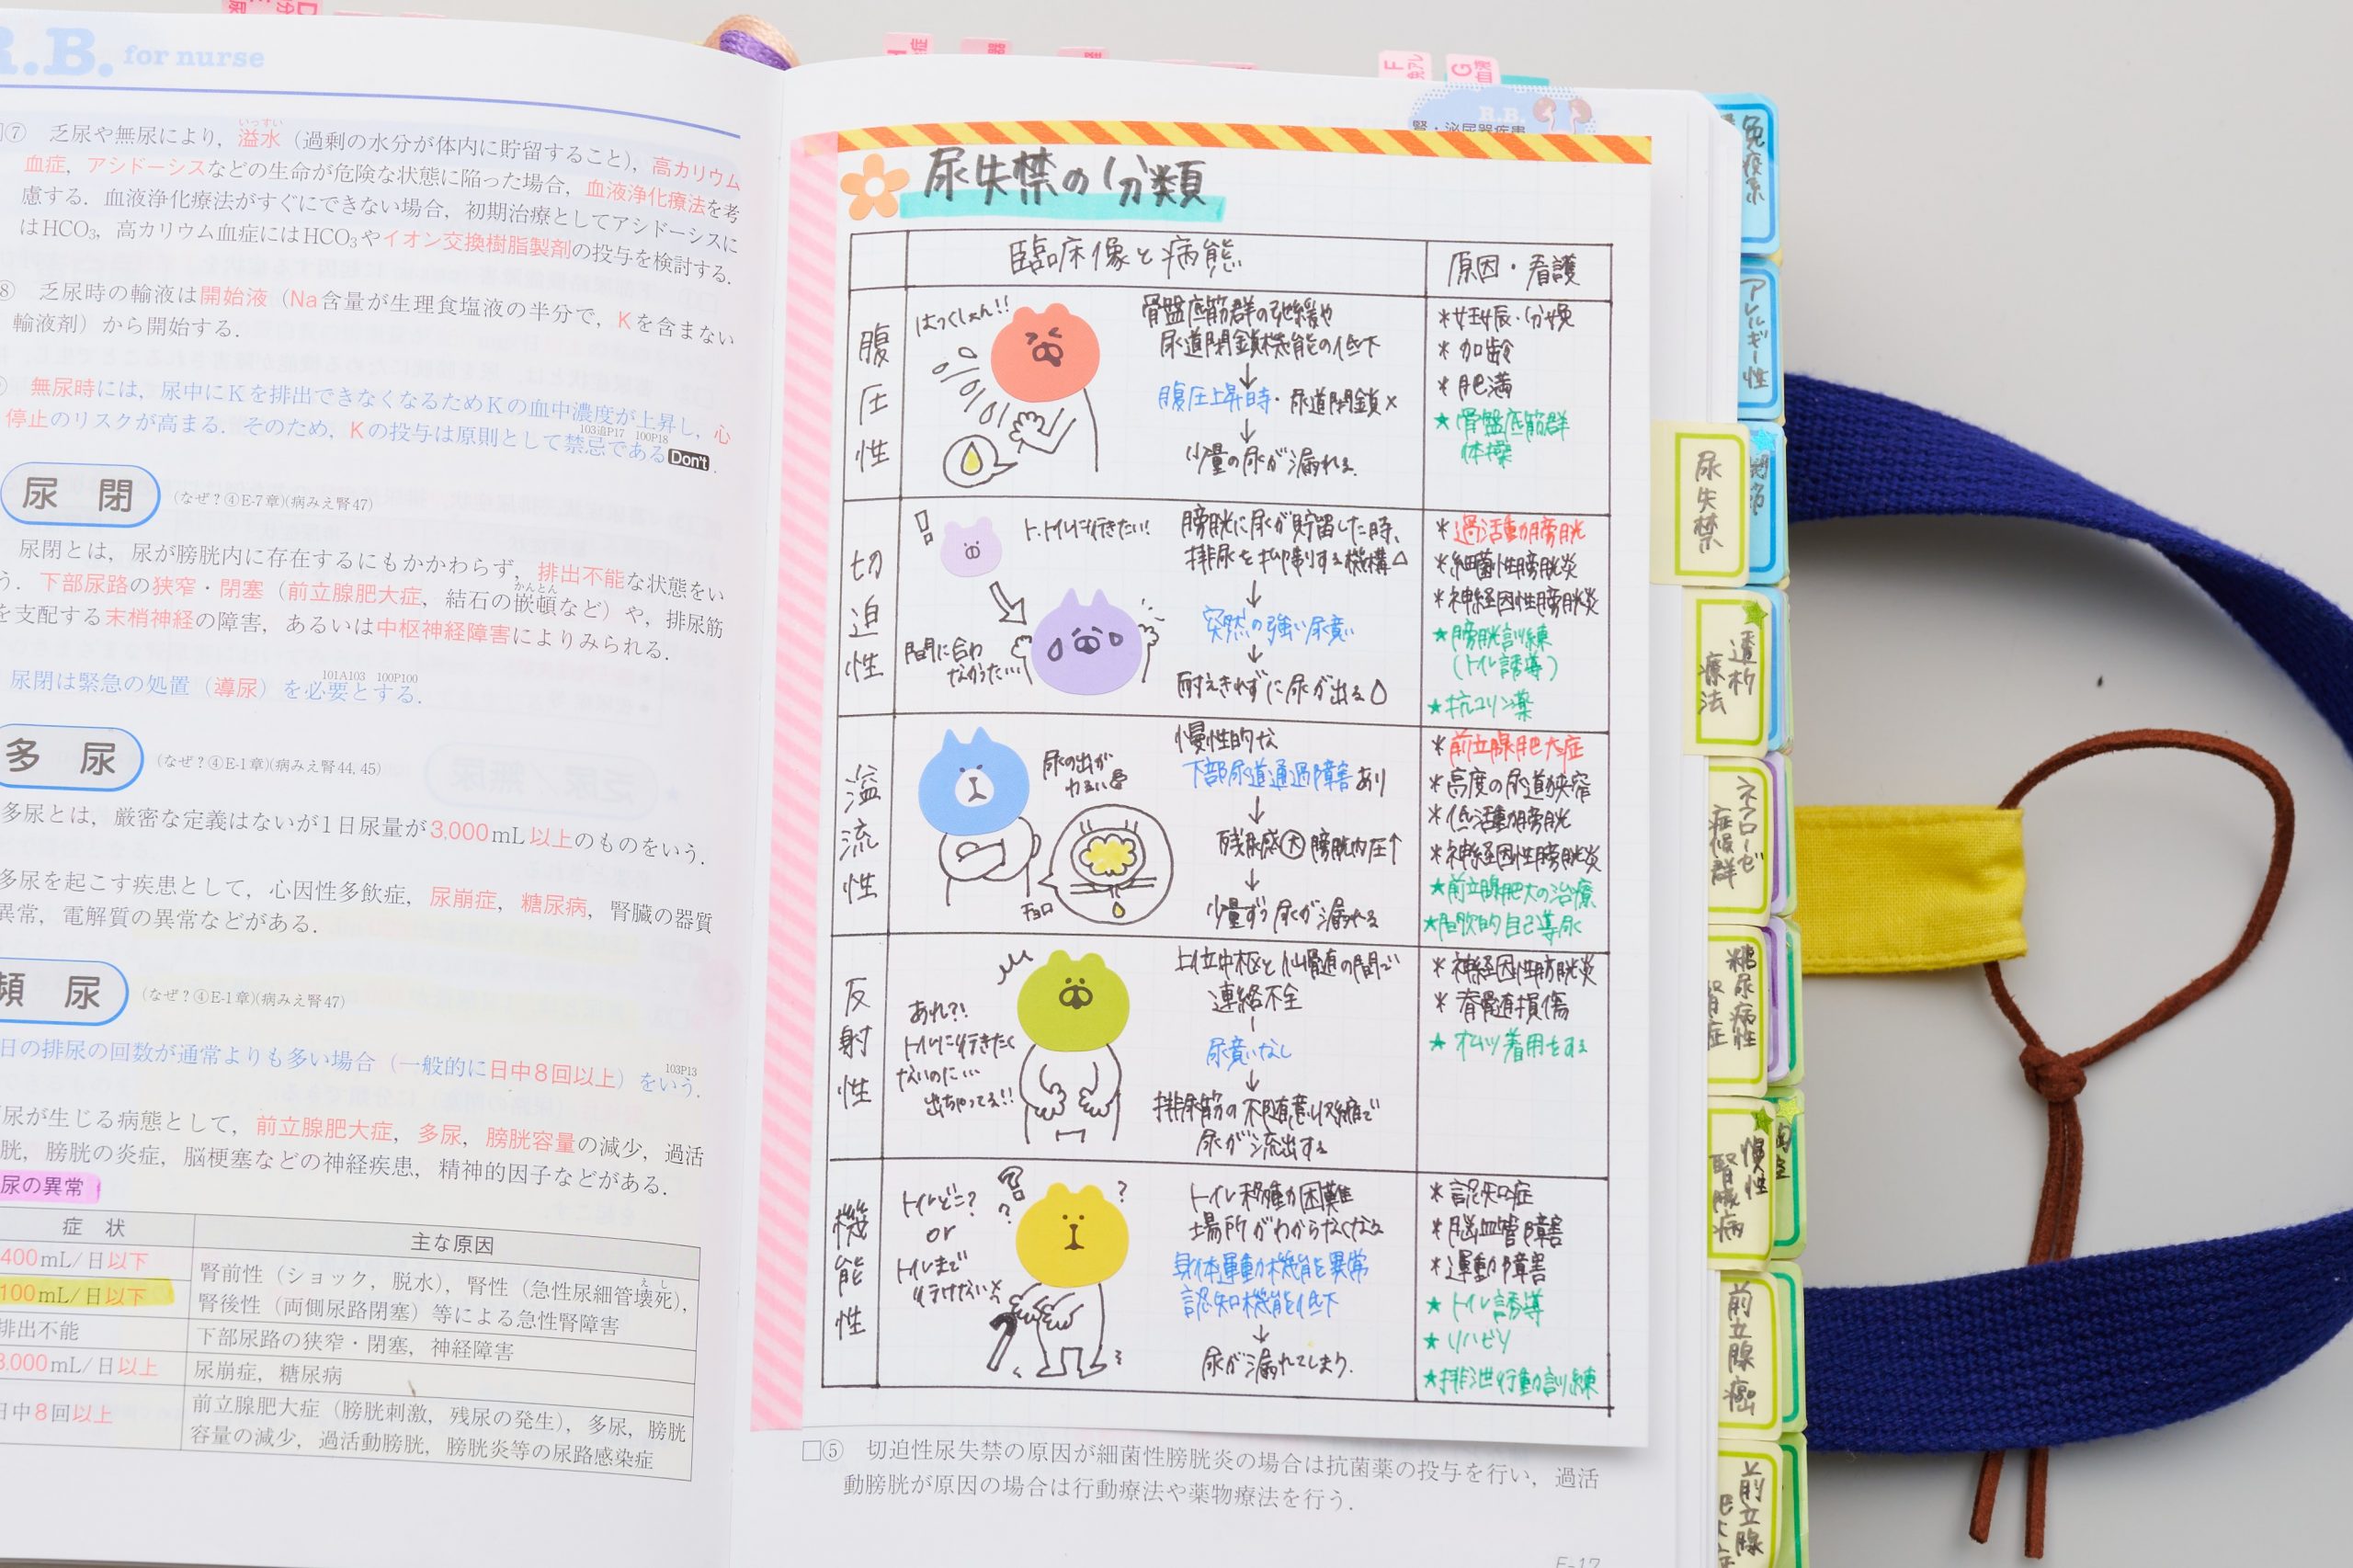 R.B. for nurse
□⑦ 乏尿や無尿により，溢水（過剰の水分が体内に貯留すること），高カリウム
いっすい
血症，アシドーシスなどの生命が危険な状態に陥った場合，血液浄化療法を考
慮する．血液浄化療法がすぐにできない場合，初期治療としてアシドーシスに
はHCO₃，高カリウム血症にはHCO₃やイオン交換樹脂製剤の投与を検討する．
⑧ 乏尿時の輸液は開始液（Na含量が生理食塩液の半分で，Kを含まない
輸液剤）から開始する．
無尿時には，尿中にKを排出できなくなるためKの血中濃度が上昇し，心
停止のリスクが高まる．そのため，Kの投与は原則として禁忌であるDon't．
103追P17 100P18
尿閉 (なぜ？④E-7章)(病みえ腎47)
尿閉とは，尿が膀胱内に存在するにもかかわらず，排出不能な状態をい
う．下部尿路の狭窄・閉塞（前立腺肥大症，結石の嵌頓など）や，排尿筋
かんとん
を支配する末梢神経の障害，あるいは中枢神経障害によりみられる．
尿閉は緊急の処置（導尿）を必要とする．
101A103 100P100
多尿 (なぜ？④E-1章)(病みえ腎44, 45)
多尿とは，厳密な定義はないが1日尿量が3,000mL以上のものをいう．
多尿を起こす疾患として，心因性多飲症，尿崩症，糖尿病，腎臓の器質
異常，電解質の異常などがある．
頻尿 (なぜ？④E-1章)(病みえ腎47)
日の排尿の回数が通常よりも多い場合（一般的に日中8回以上）をいう．
103P13
尿が生じる病態として，前立腺肥大症，多尿，膀胱容量の減少，過活
胱，膀胱の炎症，脳梗塞などの神経疾患，精神的因子などがある．
尿の異常
症状 主な原因
400mL/日以下
100mL/日以下
腎前性（ショック，脱水），腎性（急性尿細管壊死），
えし
腎後性（両側尿路閉塞）等による急性腎障害
排出不能 下部尿路の狭窄・閉塞，神経障害
3,000mL/日以上 尿崩症，糖尿病
日中8回以上 前立腺肥大症（膀胱刺激，残尿の発生），多尿，膀胱
容量の減少，過活動膀胱，膀胱炎等の尿路感染症
R.B.
腎・泌尿器疾患
尿失禁の分類
臨床像と病態
原因・看護
腹圧性
はっくしょん!!
骨盤底筋群の弛緩や
尿道閉鎖機能の低下
↓
腹圧上昇時・尿道閉鎖×
↓
少量の尿が漏れる
*妊娠・分娩
*加齢
*肥満
★骨盤底筋群
体操
切迫性
ト、トイレに行きたい!
間に合わ
なかった…
膀胱に尿が貯留した時、
排尿を抑制する機構△
↓
突然の強い尿意
↓
耐えきれずに尿が出る
*過活動膀胱
*細菌性膀胱炎
*神経因性膀胱炎
★膀胱訓練
（トイレ誘導）
★抗コリン薬
溢流性
尿の出が
わるい
チョロ
慢性的な
下部尿道通過障害あり
↓
残尿感因膀胱内圧↑
↓
少量ずつ尿が漏れる
*前立腺肥大症
*高度の尿道狭窄
*低活動膀胱
*神経因性膀胱炎
★前立腺肥大の治療
★間欠的自己導尿
反射性
あれ?!
トイレに行きたく
ないのに…
出ちゃってる!!
上位中枢と仙髄の間で
連絡不全
尿意なし
↓
排尿筋の不随意収縮で
尿が流出する
*神経因性膀胱炎
*脊髄損傷
★オムツ着用をする
機能性
トイレどこ?
or
トイレまで
行けない
トイレ移動困難
場所がわからなくなる
身体運動機能異常
認知機能低下
↓
尿が漏れてしまう.
*認知症
*脳血管障害
*運動障害
★トイレ誘導
★リハビリ
★排泄行動訓練
□⑤ 切迫性尿失禁の原因が細菌性膀胱炎の場合は抗菌薬の投与を行い，過活
動膀胱が原因の場合は行動療法や薬物療法を行う．
E-17
免疫系
アレルギー性
尿失禁
透析
療法
ネフローゼ
症候群
糖尿病性
腎症
慢性
腎臓病
前立腺癌
前立腺